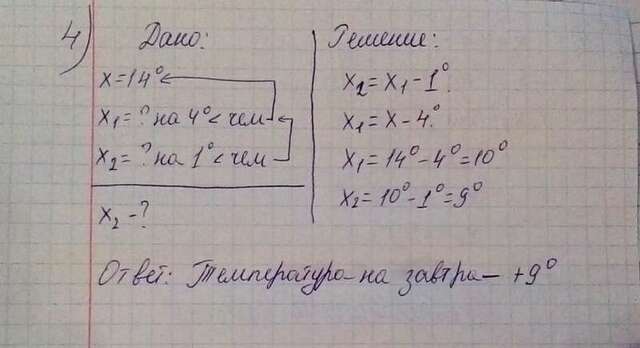 4)
Дано:
x=14°
x₁=? на 4°< чем
x₂=? на 1°< чем
x₂-?
Решение:
x₂=x₁-1°.
x₁=x-4°.
x₁=14°-4°=10°
x₂=10°-1°=9°
Ответ: Температура на завтра - +9°